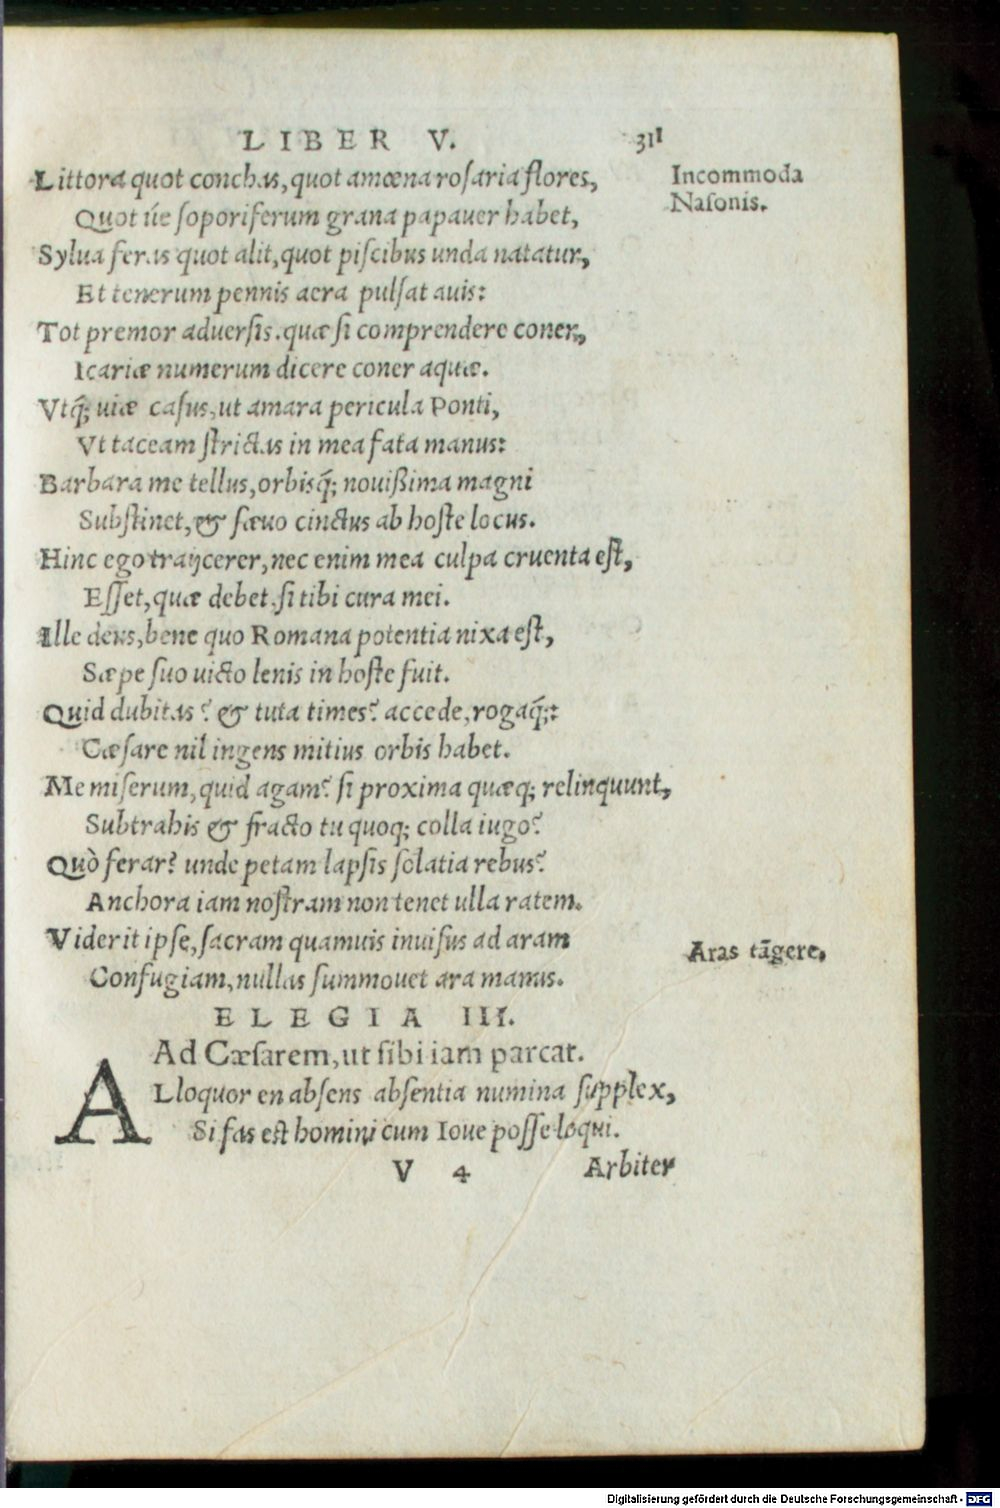 LIBER V. 311
Littora quot conchas, quot amœna rosaria flores,
Incommoda
Nasonis.
Quot úe soporiferum grana papauer habet,
Sylua feras quot alit, quot piscibus unda natatur,
Et tenerum pennis aera pulsat auis:
Tot premor aduersis. quæ si comprendere coner,
Icariæ numerum dicere coner aquæ.
Vtq́; uiæ casus, ut amara pericula Ponti,
Vt taceam strictas in mea fata manus:
Barbara me tellus, orbisq́; nouißima magni
Substinet, & sæuo cinctus ab hoste locus.
Hinc ego traijcerer, nec enim mea culpa cruenta est,
Esset, quæ debet. si tibi cura mei.
Ille deus, bene quo Romana potentia nixa est,
Sæpe suo uicto lenis in hoste fuit.
Quid dubitas? & tuta times? accede, rogaq́;:
Cæsare nil ingens mitius orbis habet.
Me miserum, quid agam? si proxima quæq; relinquunt,
Subtrahis & fracto tu quoq; colla iugo?
Quò ferar? unde petam lapsis solatia rebus?
Anchora iam nostram non tenet ulla ratem.
Viderit ipse, sacram quamuis inuisus ad aram
Aras tāgere.
Confugiam, nullas summouet ara manus.
ELEGIA III.
Ad Cæsarem, ut sibi iam parcat.
ALloquor en absens absentia numina supplex,
Si fas est homini cum Ioue posse loqui.
V 4 Arbiter
Digitalisierung gefördert durch die Deutsche Forschungsgemeinschaft - DFG